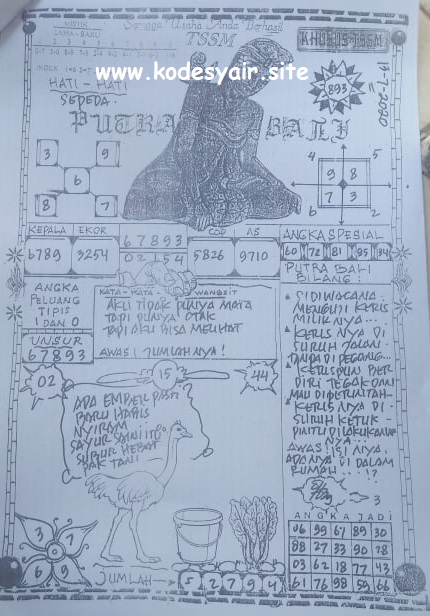 Semoga Usaha Anda Berhasil
TSSM
KHUSUS TSSM
MISTIK
LAMA - BARU
www.kodesyair.site
HATI - HATI
SEPEDA.
893
PUTRA BALI
3 9
6
8 7
4 5
9 8
7 3
6 2
KEPALA EKOR
6789 3254
67893
02154
COP AS
5826 9710
ANGKA SPESIAL
60 72 81 95 34
PUTRA BALI
BILANG :
ANGKA
PELUANG
TIPIS
1 DAN 0
UNSUR
67893
KATA - KATA - WANGSIT
AKU TIDAK PUNYA MATA
TAPI PUNYA OTAK
TAPI AKU BISA MELIHAT
AWAS! JUMLAHNYA!
SIDIWACANA -
MENGUJI KERIS
MILIKNYA...
KERISNYA DI
SURUH JALAN -
TANPA DI PEGANG...
KERISPUN BER
DIRI TEGAK DAN
MAU DIPERINTAH -
KERISNYA DI -
SURUH KETUK -
PINTU DILAKUKAN
NYA...
AWAS! ISI NYA.
ADANYA DI DALAM
RUMAH....!?
02 15 44
ADA EMBER PASTI
BARU HABIS
NYIRAM
SAYUR
SUBUR HEBAT
PAK TANI
3
3 7
6 9
JUMLAH
5 2 7 9 4
ANGKA JADI
06 99 67 89 30
88 27 33 90 78
03 62 18 77 43
61 76 98 50 66